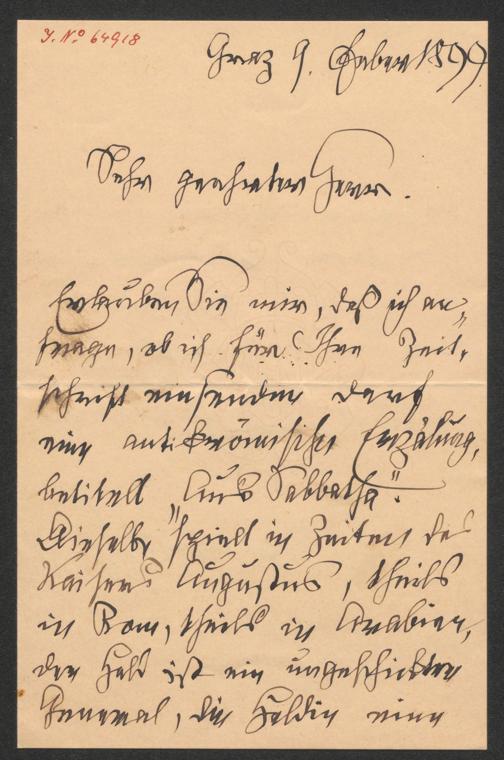 J. No 64918
Graz 9. Feber 1899
Sehr geehrter Herr.
Erlauben Sie mir, daß ich an-
frage, ob ich für Ihre Zeit-
schrift einsenden darf
eine antik römische Erzälung,
betitelt „Aus Sabbatha“.
Dieselbe spielt in Zeiten des
Kaisers Augustus, theils
in Rom, theils in Arabien,
der Held ist ein ungeschickter
General, die Heldin eine